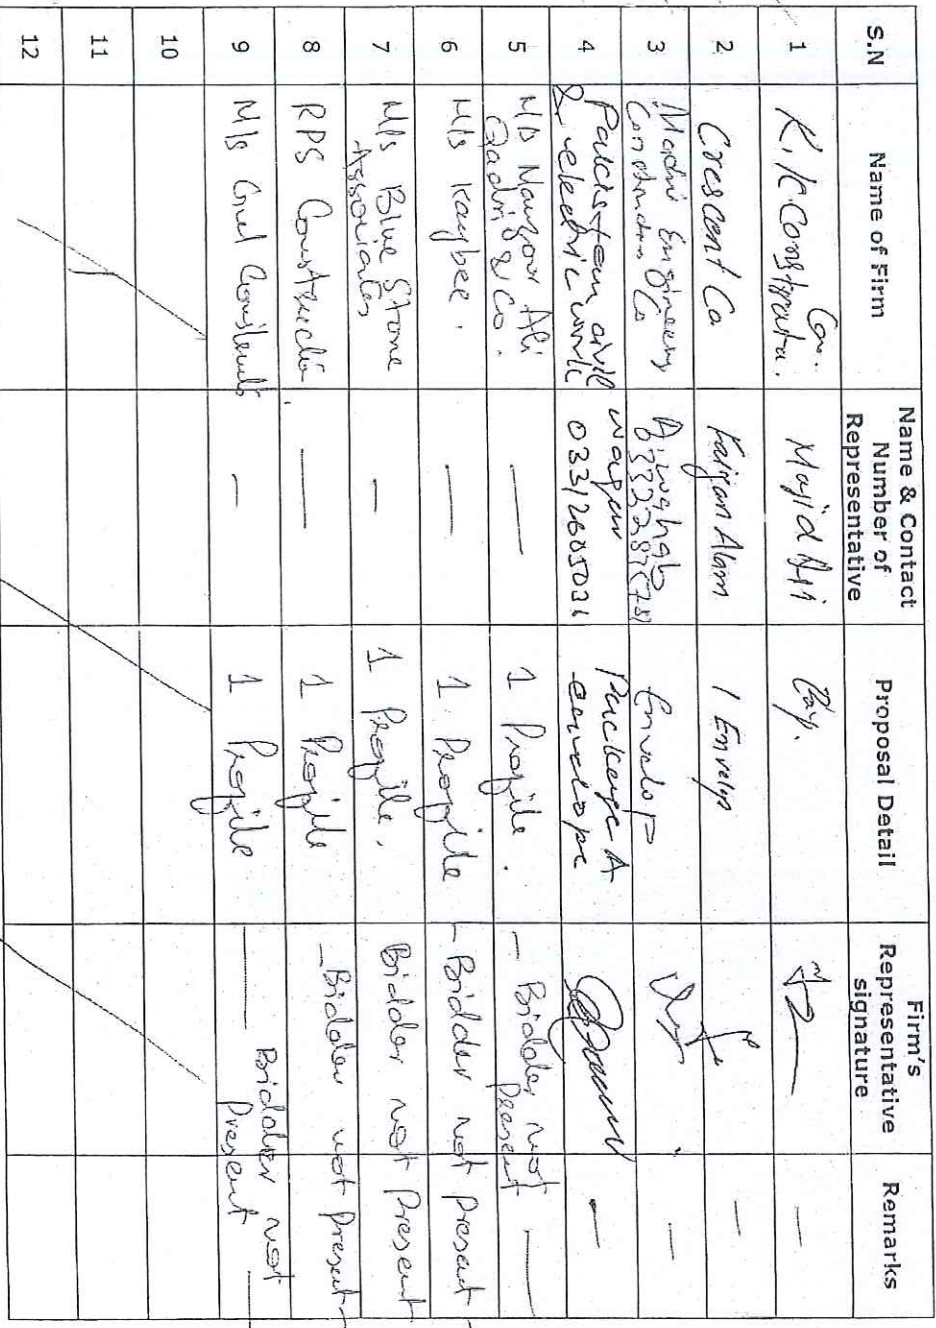 S.N Name of Firm Name & Contact Number of Representative Proposal Detail Firm's Representative signature Remarks
1 K.K Construction Co. Majid Ali —
2 Crescent Co Faizan Alam 1 Envelop —
3 Madni Engineering Construction Co A. wahab Envelop —
4 Pakistan civil & electric work waqar 03312605021 Package A envelope —
5 M/s Manzoor Ali Qadri & Co. — 1 Profile. — Bidder not Present —
6 M/s Kaybee. — 1 Profile - Bidder not Present
7 M/s Blue Stone Associates — 1 Profile. Bidder not Present
8 RPS Construction — 1 Profile - Bidder not Present -
9 M/s — 1 Profile — Bidder not Present —
10
11
12